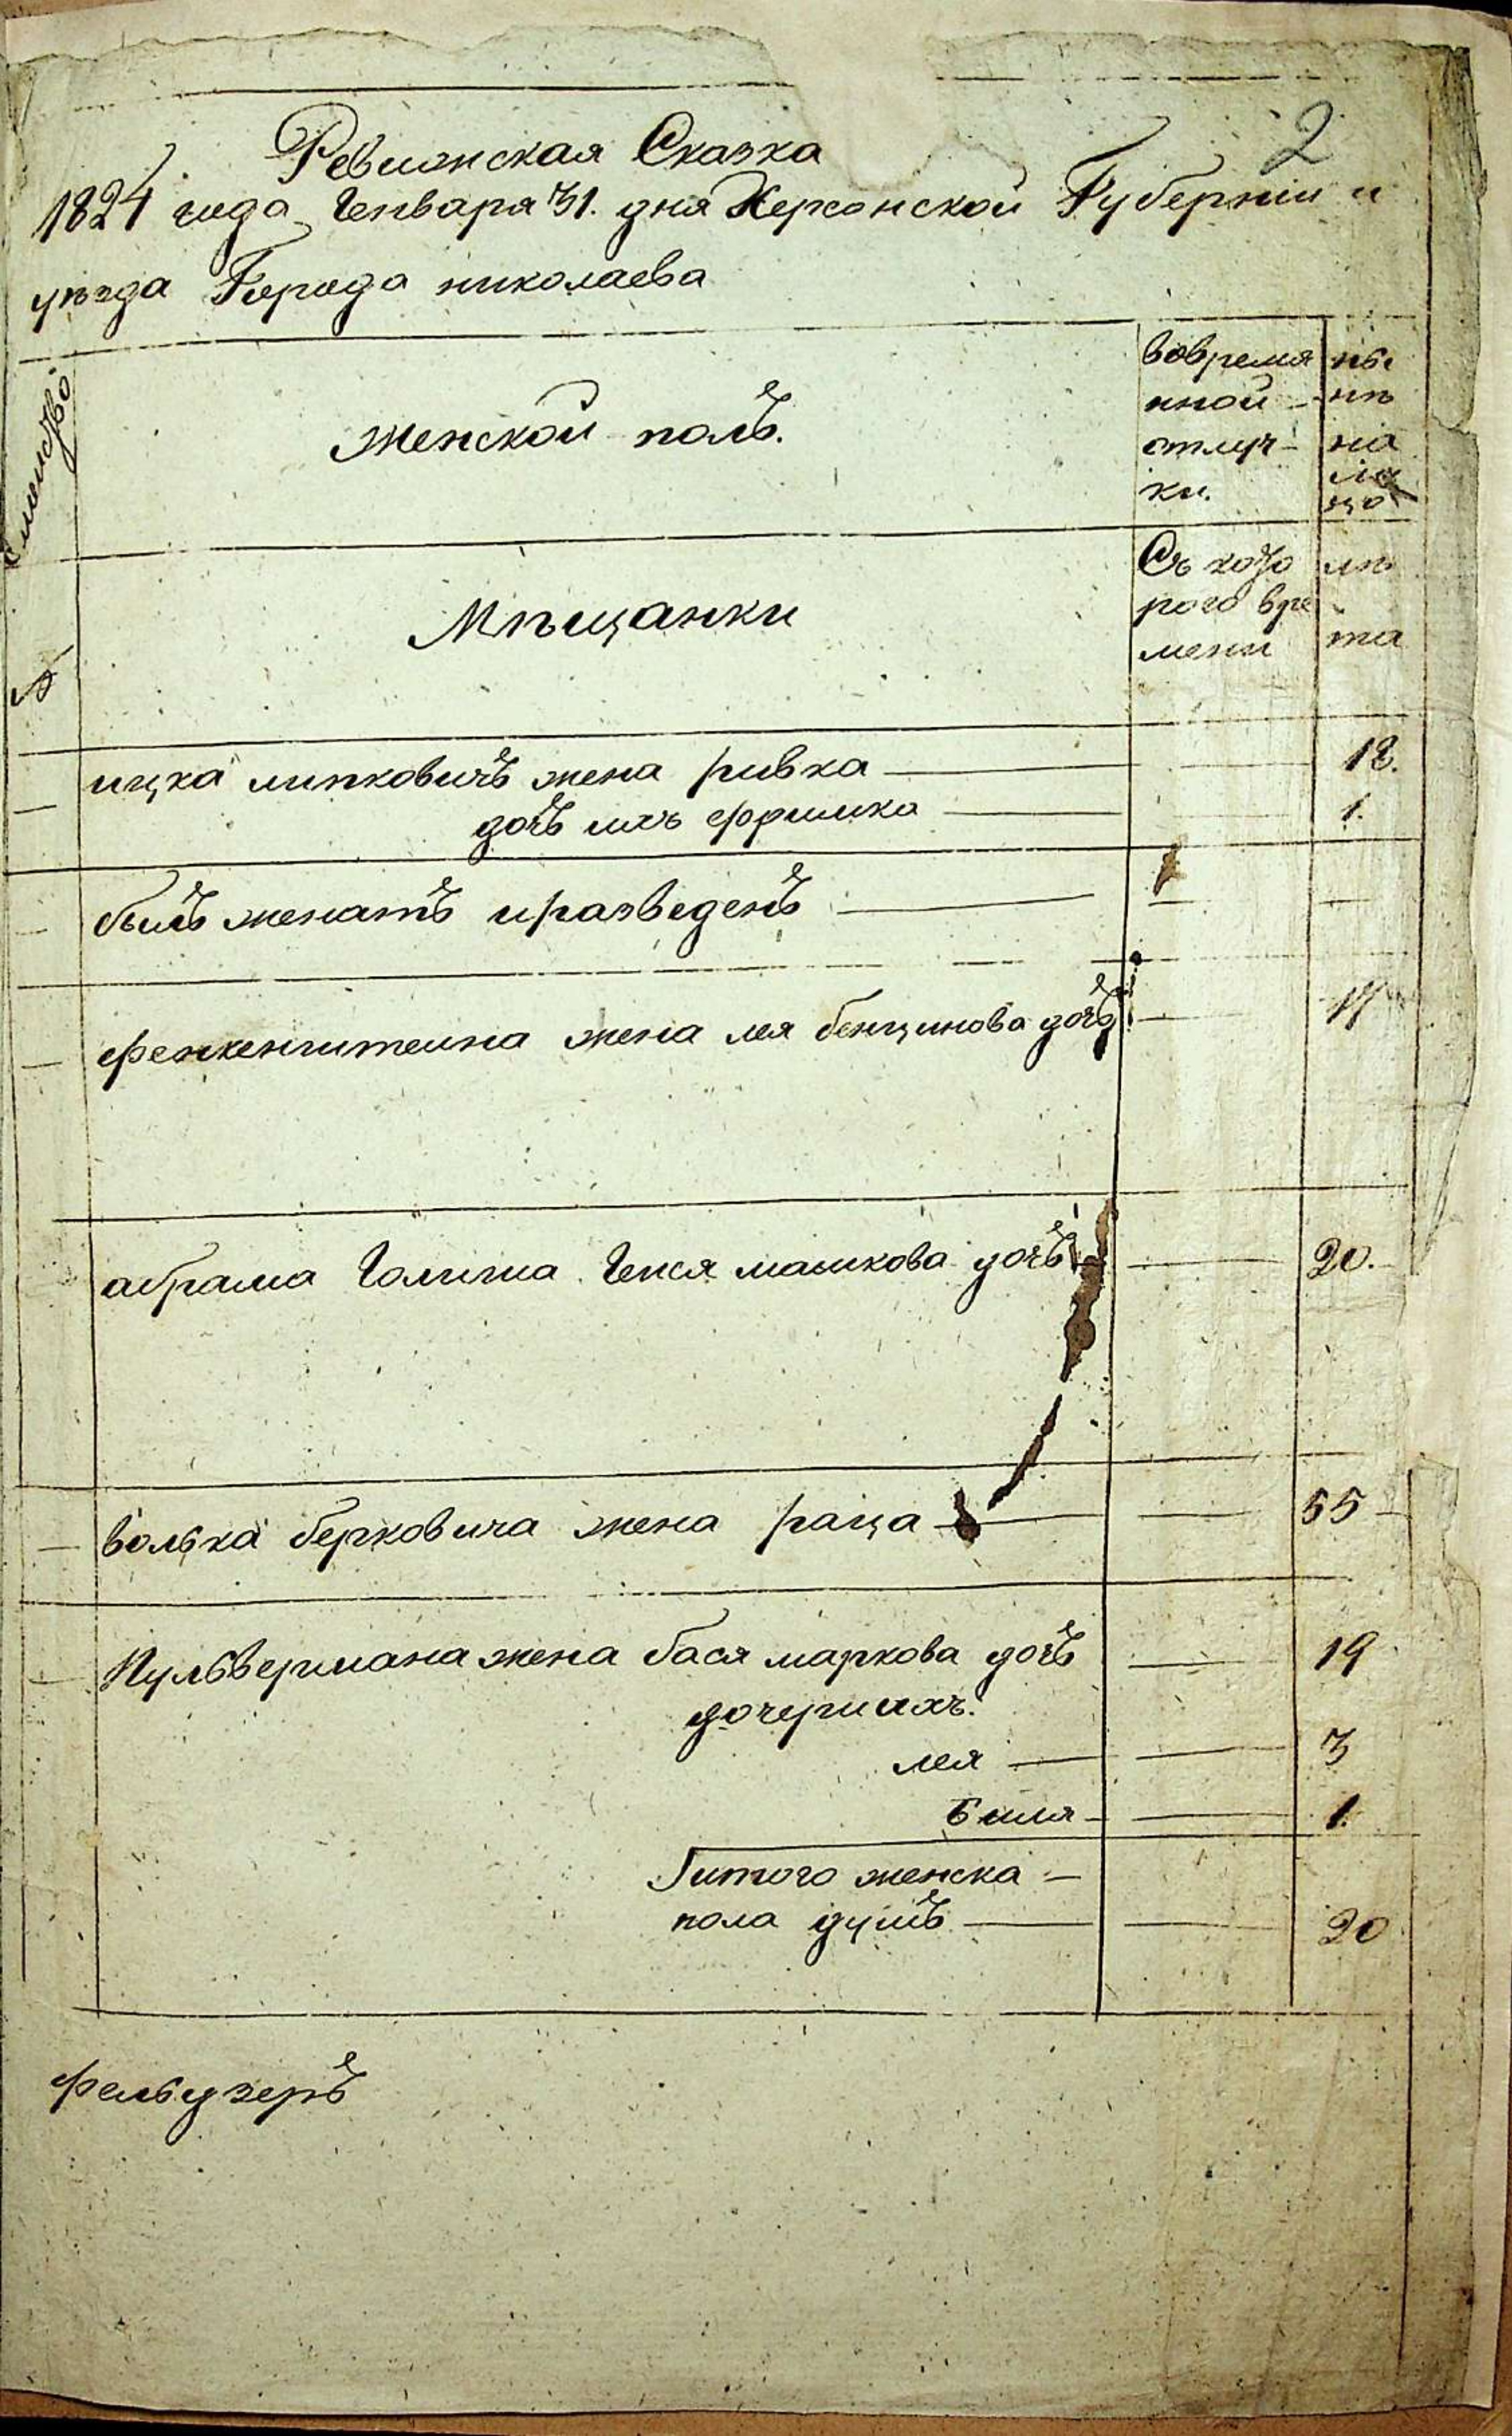 2
Ревижская Сказка
1824 года Генваря 31. дня Херсонской Губерніи и
уѣзда Города николаева
Семейство
женской полъ.
вовремя
нной
отлуч-
ки.
ны
нѣ
на
ли
цо
№
Мѣщанки
Съ кото
рого вре
мени
лѣ
та
ицка липковичъ жена ривка 18.
дочь ихъ фримка 1.
былъ женатъ иразведенъ
френкенштеина жена лея бенцинова дочь
абрама Голиша Генся машкова дочъ 20.
волька берковича жена раца 55
Пульвермана жена бася маркова дочъ 19
дочери ихъ:
лея 3
Биля 1.
Гитого женска
пола душъ 20
Фельдзеръ